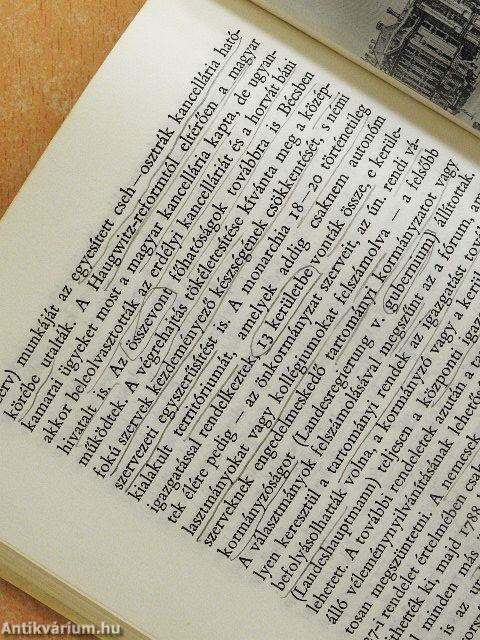 erv) munkáját az egyesített cseh–osztrák kancellária ható-
körébe utalták. A Haugwitz-reformtól eltérően a magyar
kamarai ügyeket most a magyar kancellária kapta, de ugyan-
akkor beleolvasztották az erdélyi kancelláriát és a horvát báni
hivatalt is. Az összevont főhatóságok továbbra is Bécsben
működtek. A végrehajtás tökéletesítése kívánta meg a közép-
fokú szervek kezdeményező készségének csökkentését s némi
szervezeti egyszerűsítést is. A monarchia 18–20 történetileg
kialakult territóriumát, amelyek addig csaknem autonóm
igazgatással rendelkeztek, 13 kerületbe vonták össze, e kerüle-
tek élére pedig — az önkormányzat szerveit, az ún. rendi vá-
lasztmányokat vagy kollégiumokat felszámolva — a felsőbb
szerveknek engedelmeskedő tartományi kormányzatot vagy
kormányzóságot (Landesregierung v. gubernium) állítottak.
A választmányok felszámolásával megszűnt az a fórum,
lyen keresztül a tartományi rendek az igazgatást
befolyásolhatták volna, a kormányzó vagy a
(Landeshauptmann) teljesen a központi
lehetett. A további rendeletek azután a
álló véleménynyilvánításának
tosan megszüntetni. A nemesek
-i rendelet értelmében
majd 1788
minden